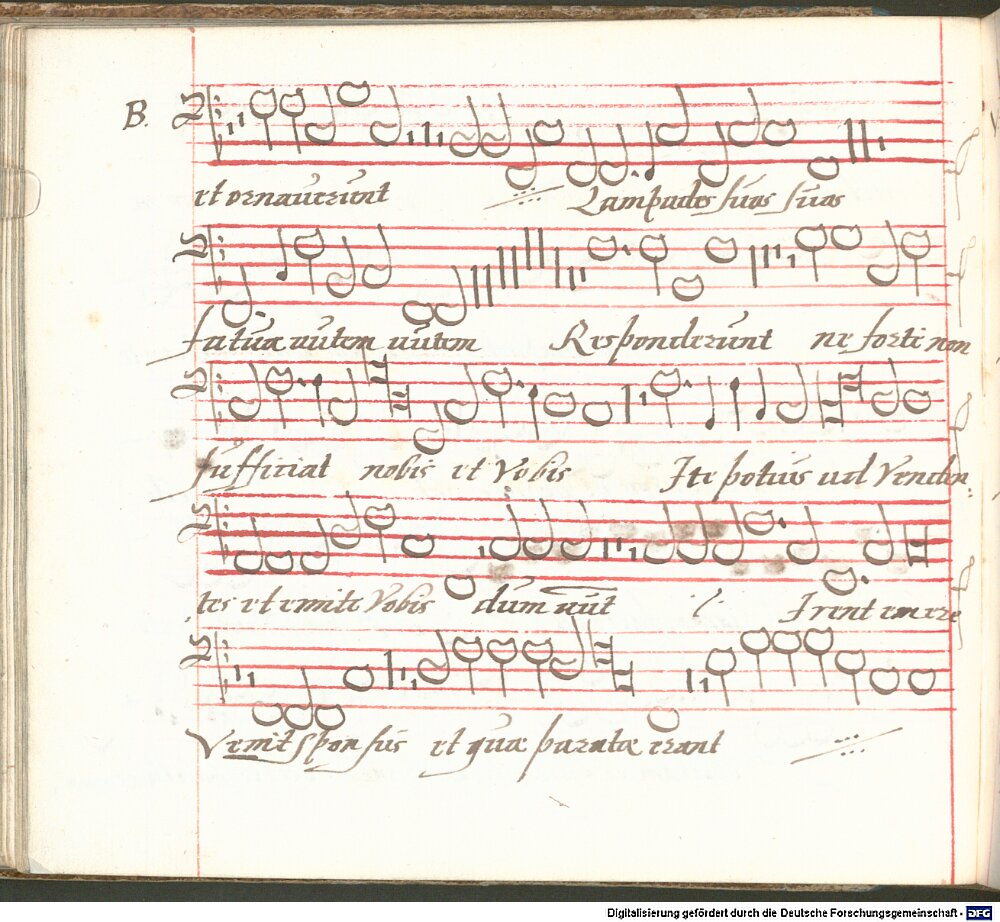 B.
et ornauerunt Lampades suas suas
fatuæ autem autem Responderunt ne forte non
sufficiat nobis et Vobis Ite potius ad Venden:
tes et emite Vobis dum aut Irent emere
Venit sponsus et quæ paratæ erant
Digitalisierung gefördert durch die Deutsche Forschungsgemeinschaft - DFG